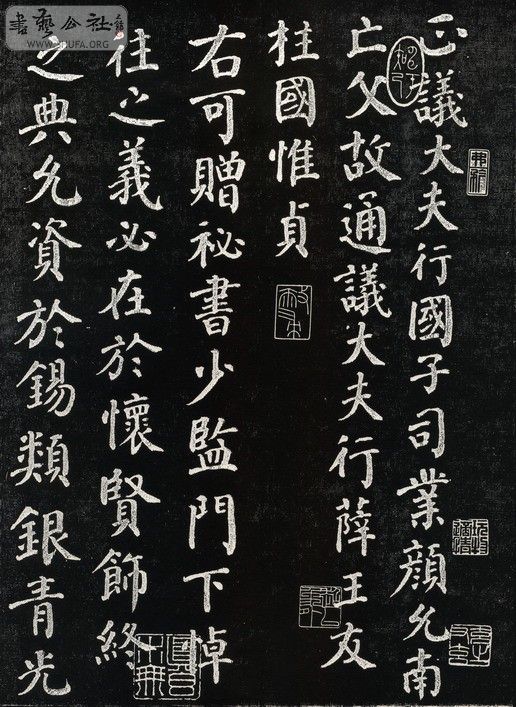 正議大夫行國子司業顏允南
亡父故通議大夫行薛王友
柱國惟貞
右可贈祕書少監門下悼
往之義必在於懷賢飾終
之典允資於錫類銀青光
書藝公社
WWW.SHUFA.ORG